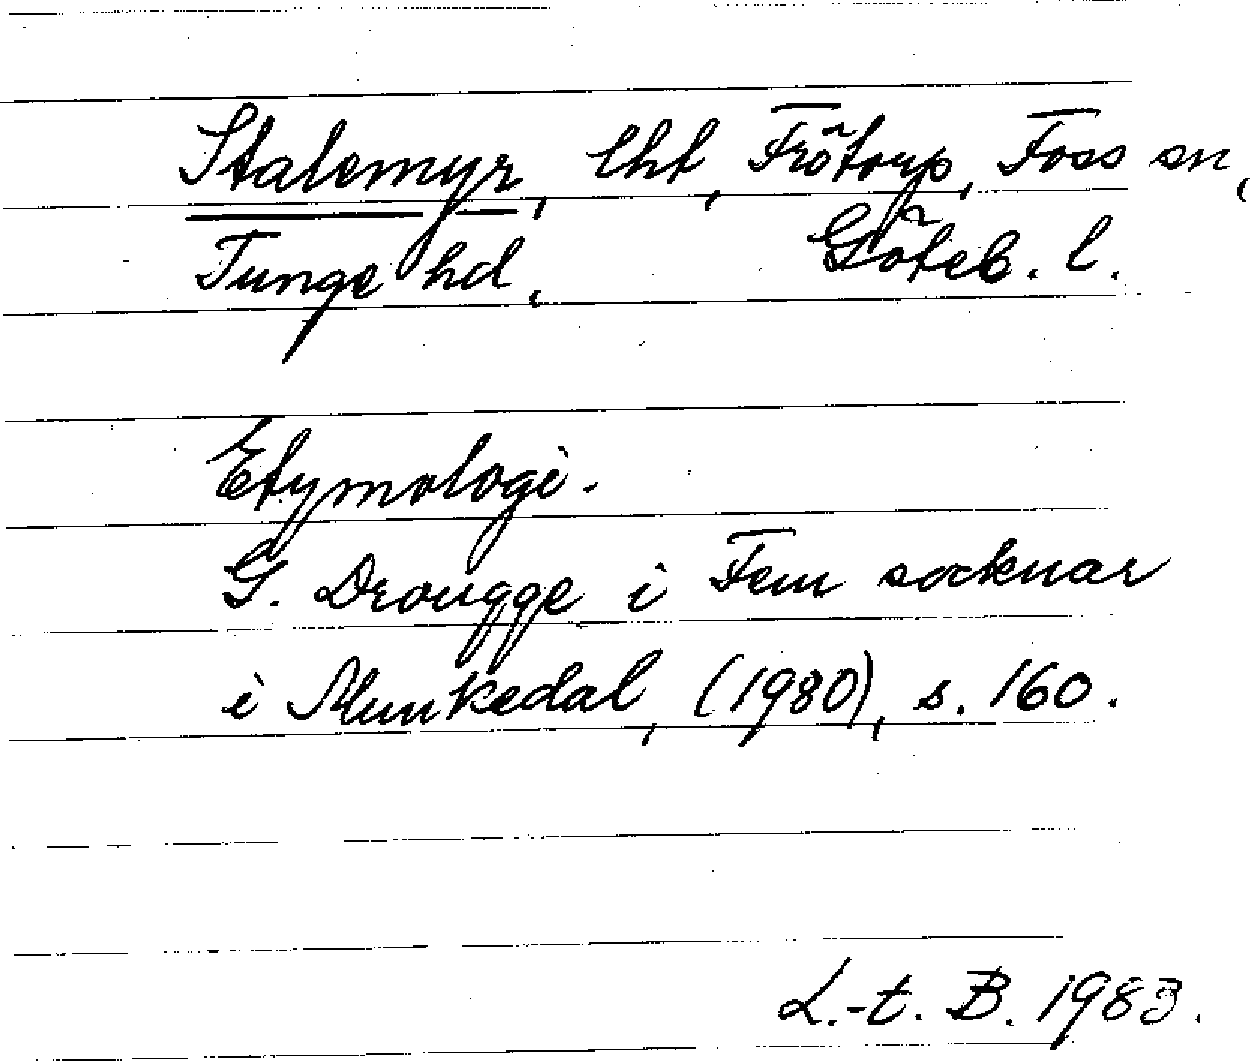 Stalemyr, lht, Frötorp, Foss sn,
Tunge hd, Göteb. l.
Etymologi.
G. Drougge i Fem socknar
i Munkedal, (1980), s. 160.
L.-t. B. 1983.